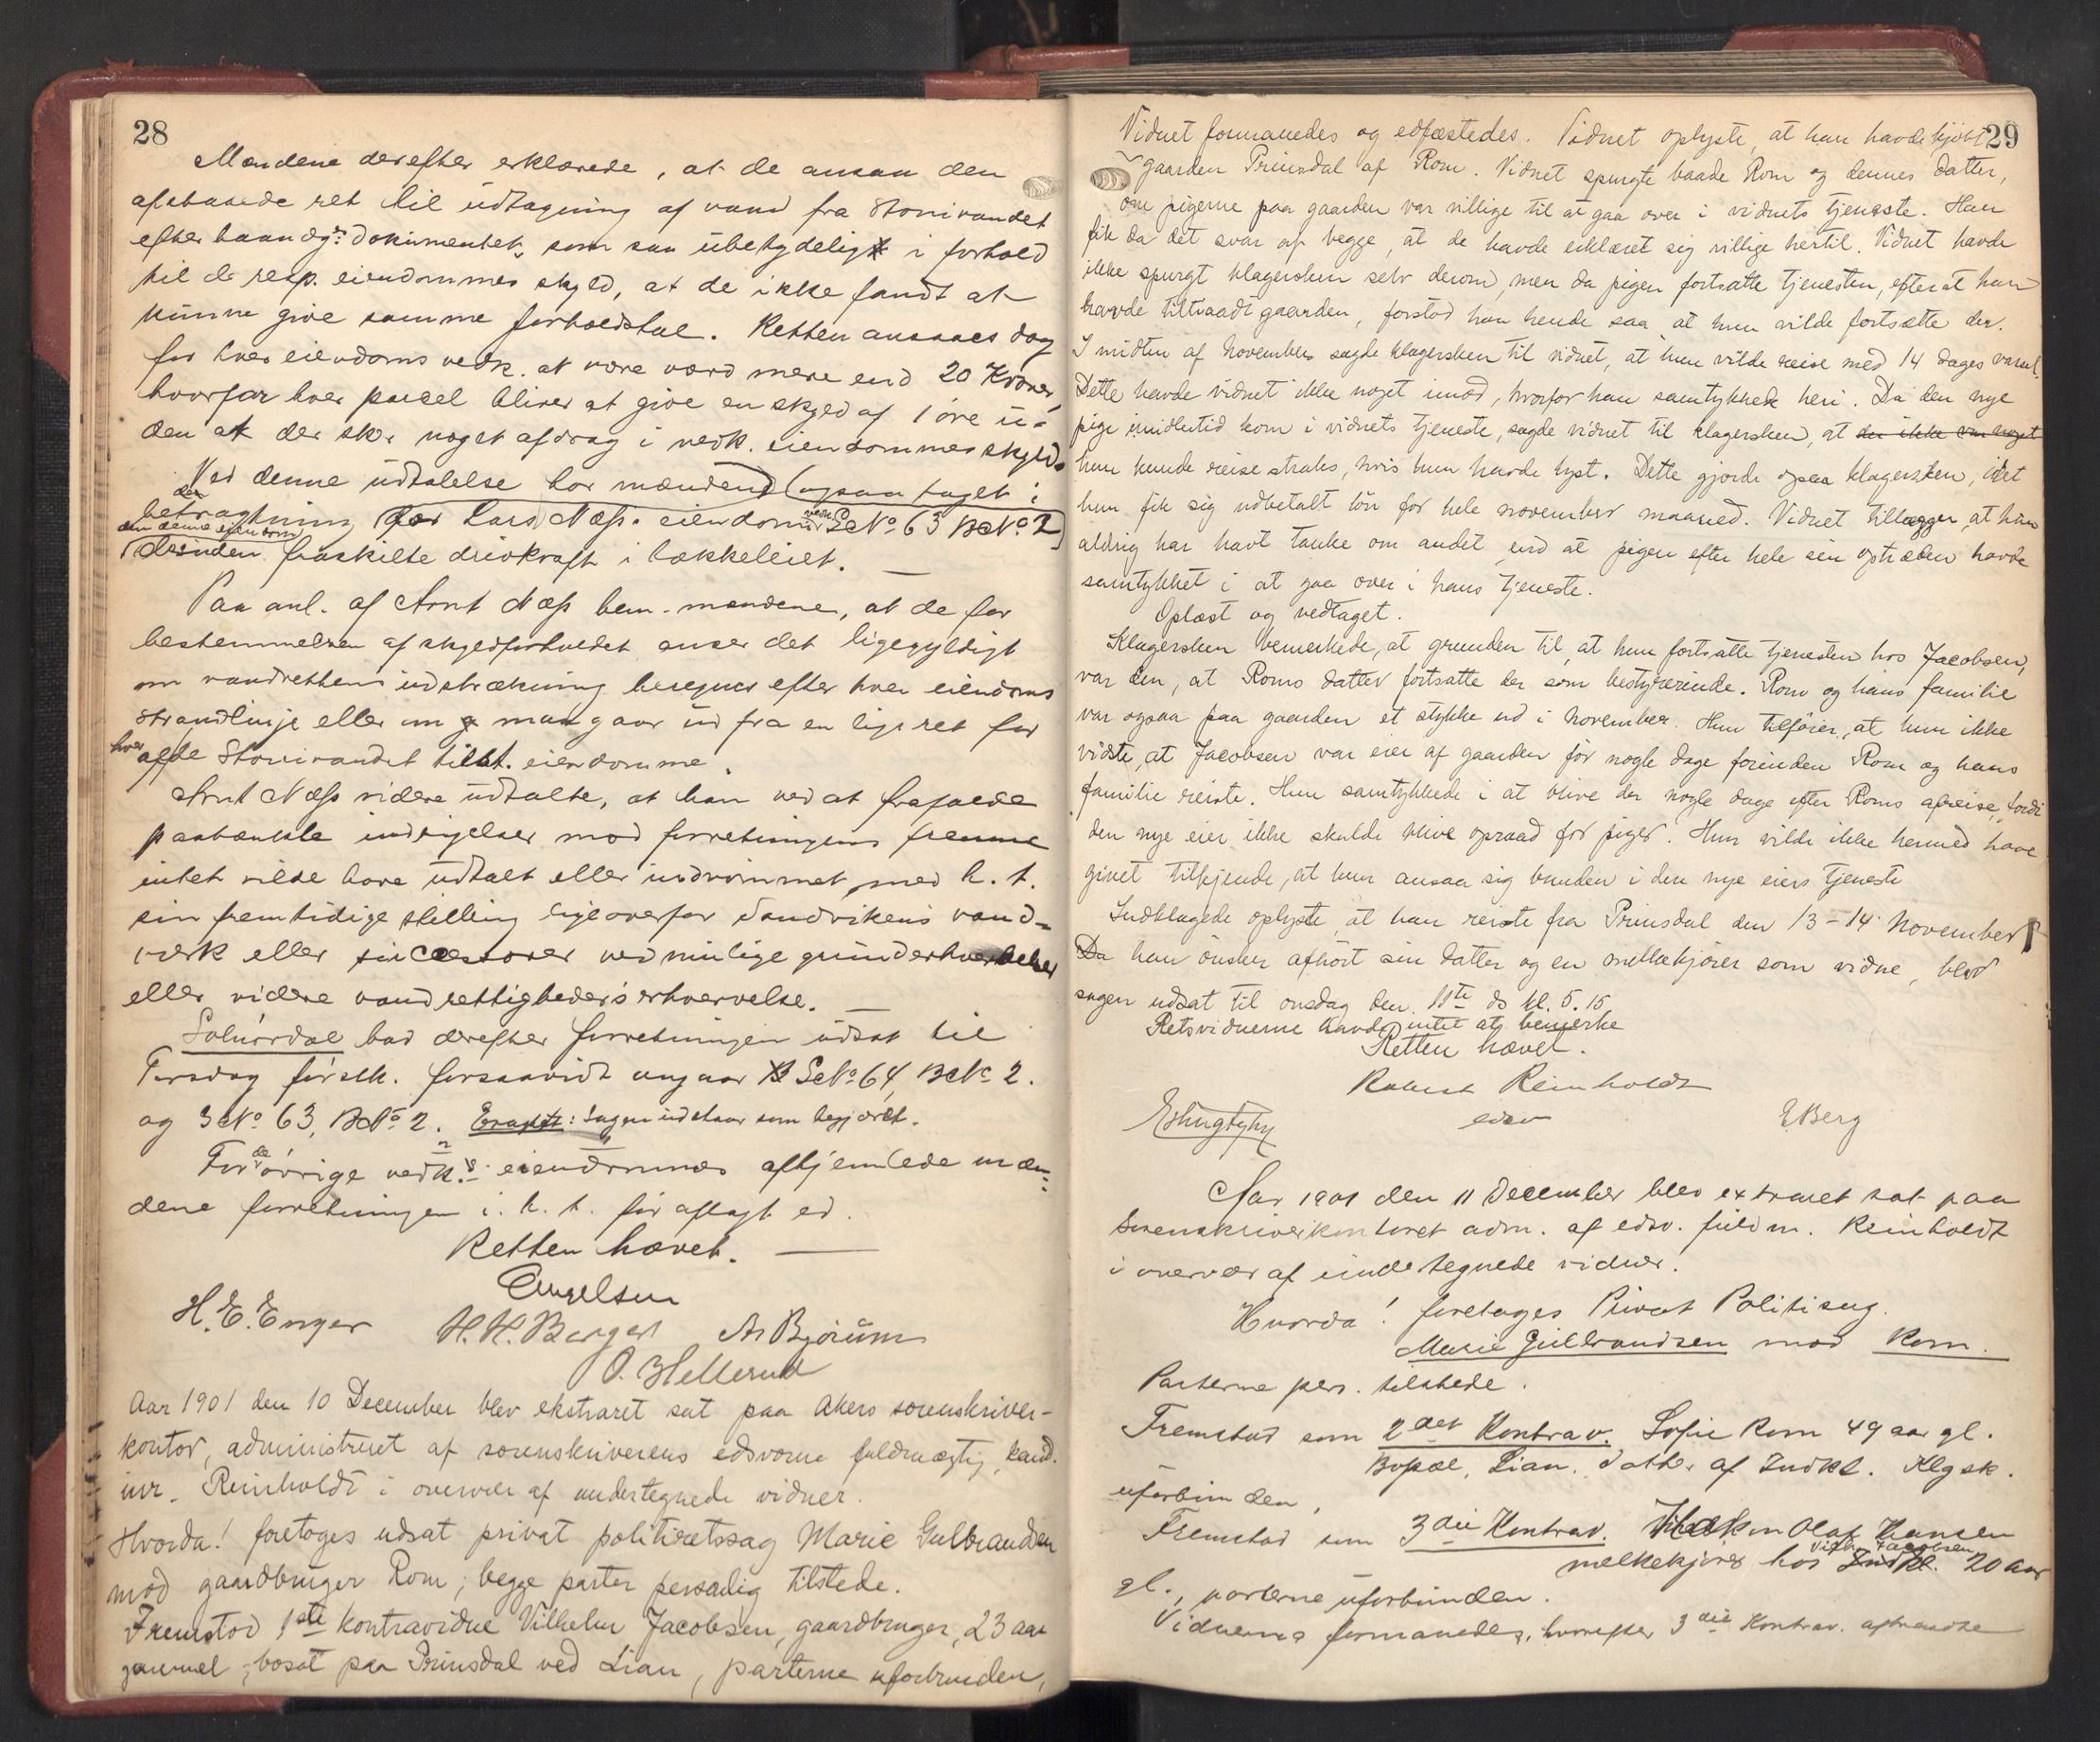 28
Mændene derefter erklærede, at de ansaa den
afstaaede ret til udtagning af vand fra Storivandet
efter haandg: dokumentet som saa ubetydelig i forhold
til de resp. eiendommes skyld, at de ikke fandt at
kunne give samme forholdstal. Retten ansaaes dog
for hver eiendoms vedk. at være værd mere end 20 Kroner,
hvorfor hver parcel bliver at give en skyld af 1 øre u-
den at der sker noget afdrag i vedk. eiendommes skyld.
Ved denne udtalelse har mændene (ogsaa taget i
betragtning den for Lars Næss. eiendom vedk. GNo 63 BNo 2)
den denne eiendom
desuden fraskilte drivkraft i bækkeleiet. —
Paa anl. af Arnt Næss bem. mændene, at de for
bestemmelsen af skyldforholdet anser det ligegyldigt
om vandrettens udstrækning beregnes efter hver eiendoms
strandlinje eller om man gaar ud fra en lige ret for
hver af de Storivandet tilst. eiendomme.
Arnt Næss videre udtalte, at han ved at frafalde
paatænkte indsigelser mod forretningens fremme
intet vilde have udtalt eller indrømmet med h. t.
sin fremtidige stilling ligeoverfor Sandvikens vand-
værk eller successorer ved mulige grunderhvervelser
eller videre vandrettigheders erhvervelse. —
Solnørdal bad derefter forretningen udsat til
Torsdag førstk. forsaavidt angaar GNo 64, BNo 2.
og GNo 63, BNo 2. Eragtet: Sagen udstaar som begjært.
For de øvrige vedk. eiendommes afhjemlede mæn-
dene forretningen i. h. t. før aflagt ed.
Retten hævet. —
Engelsen
H. E. Enger H. H. Berger A Bjørum
O. Hellerud
Aar 1901 den 10 December blev ekstraret sat paa Akers sorenskriver-
kontor, administreret af sorenskriverens edsvorne fuldmægtig, kand.
jur. Reinholdt i overvær af undertegnede vidner.
Hvorda! foretoges udsat privat politiretssag Marie Gulbrandsen
mod gaardbruger Rom; begge parter personlig tilstede.
Fremstod 1ste kontravidne Vilhelm Jacobsen, gaardbruger, 23 aar
gammel, bosat paa Prinsdal ved Lian, parterne uforbunden,
29
Vidnet formanedes og edfæstedes. Vidnet oplyste, at han havde kjøbt
gaarden Prinsdal af Rom. Vidnet spurgte baade Rom og dennes datter,
om pigerne paa gaarden var villige til at gaa over i vidnets tjeneste. Han
fik da det svar af begge, at de havde erklæret sig villige hertil. Vidnet havde
ikke spurgt klagersken selv derom, men da pigen fortsatte tjenesten, efterat han
havde tiltraadt gaarden, forstod han hende saa, at hun vilde fortsætte der.
I midten af november sagde klagersken til vidnet, at hun vilde reise med 14 dages varsel.
Dette havde vidnet ikke noget imod, hvorfor han samtykkede heri. Da den nye
pige imidlertid kom i vidnets tjeneste, sagde vidnet til klagersken, at der ikke var noget
hun kunde reise straks, hvis hun havde lyst. Dette gjorde ogsaa klagersken, idet
hun fik sig udbetalt løn for hele november maaned. Vidnet tillægger, at han
aldrig har havt tanke om andet, end at pigen efter hele sin optræden havde
samtykket i at gaa over i hans tjeneste.
Oplæst og vedtaget.
Klagersken bemerkede, at grunden til, at hun fortsatte tjenesten hos Jacobsen,
var den, at Roms datter fortsatte der som bestyrerinde. Rom og hans familie
var ogsaa paa gaarden et stykke ud i november. Hun tilføier, at hun ikke
vidste, at Jacobsen var eier af gaarden før nogle dage forinden Rom og hans
familie reiste. Hun samtykkede i at blive der nogle dage efter Roms afreise, fordi
den nye eier ikke skulde blive opraad for piger. Hun vilde ikke hermed have
givet tilkjende, at hun ansaa sig bunden i den nye eiers tjeneste
Indklagede oplyste, at han reiste fra Prinsdal den 13-14 november
Da han ønsker afhørt sin datter og en melkekjører som vidne, blev
sagen udsat til onsdag den 11te ds kl. 5.15
Retsvidnerne havde intet at bemerke
Retten hævet.
Robert Reinholdt
edsv
E Berg
Aar 1901 den 11 December blev extraret sat paa
Sorenskriverkontoret adm. af edsv. fuldm. Reinholdt
i overvær af undertegnede vidner.
Hvorda! foretoges Privat Politisag.
Marie Gulbrandsen mod Rom.
Parterne pers. tilstede.
Fremstod som 2det Kontrav. Sofie Rom 49 aar gl.
Bopæl, Lian, datter af Indkl. Klgsk.
uforbunden,
Fremstod som 3die Kontrav. Haakon Olaf Hansen
melkekjører hos Indkl. Vilh. Jacobsen 20 aar
gl., parterne uforbunden.
Vidnerne formanedes, hvorefter 3die Kontrav. aftraadte